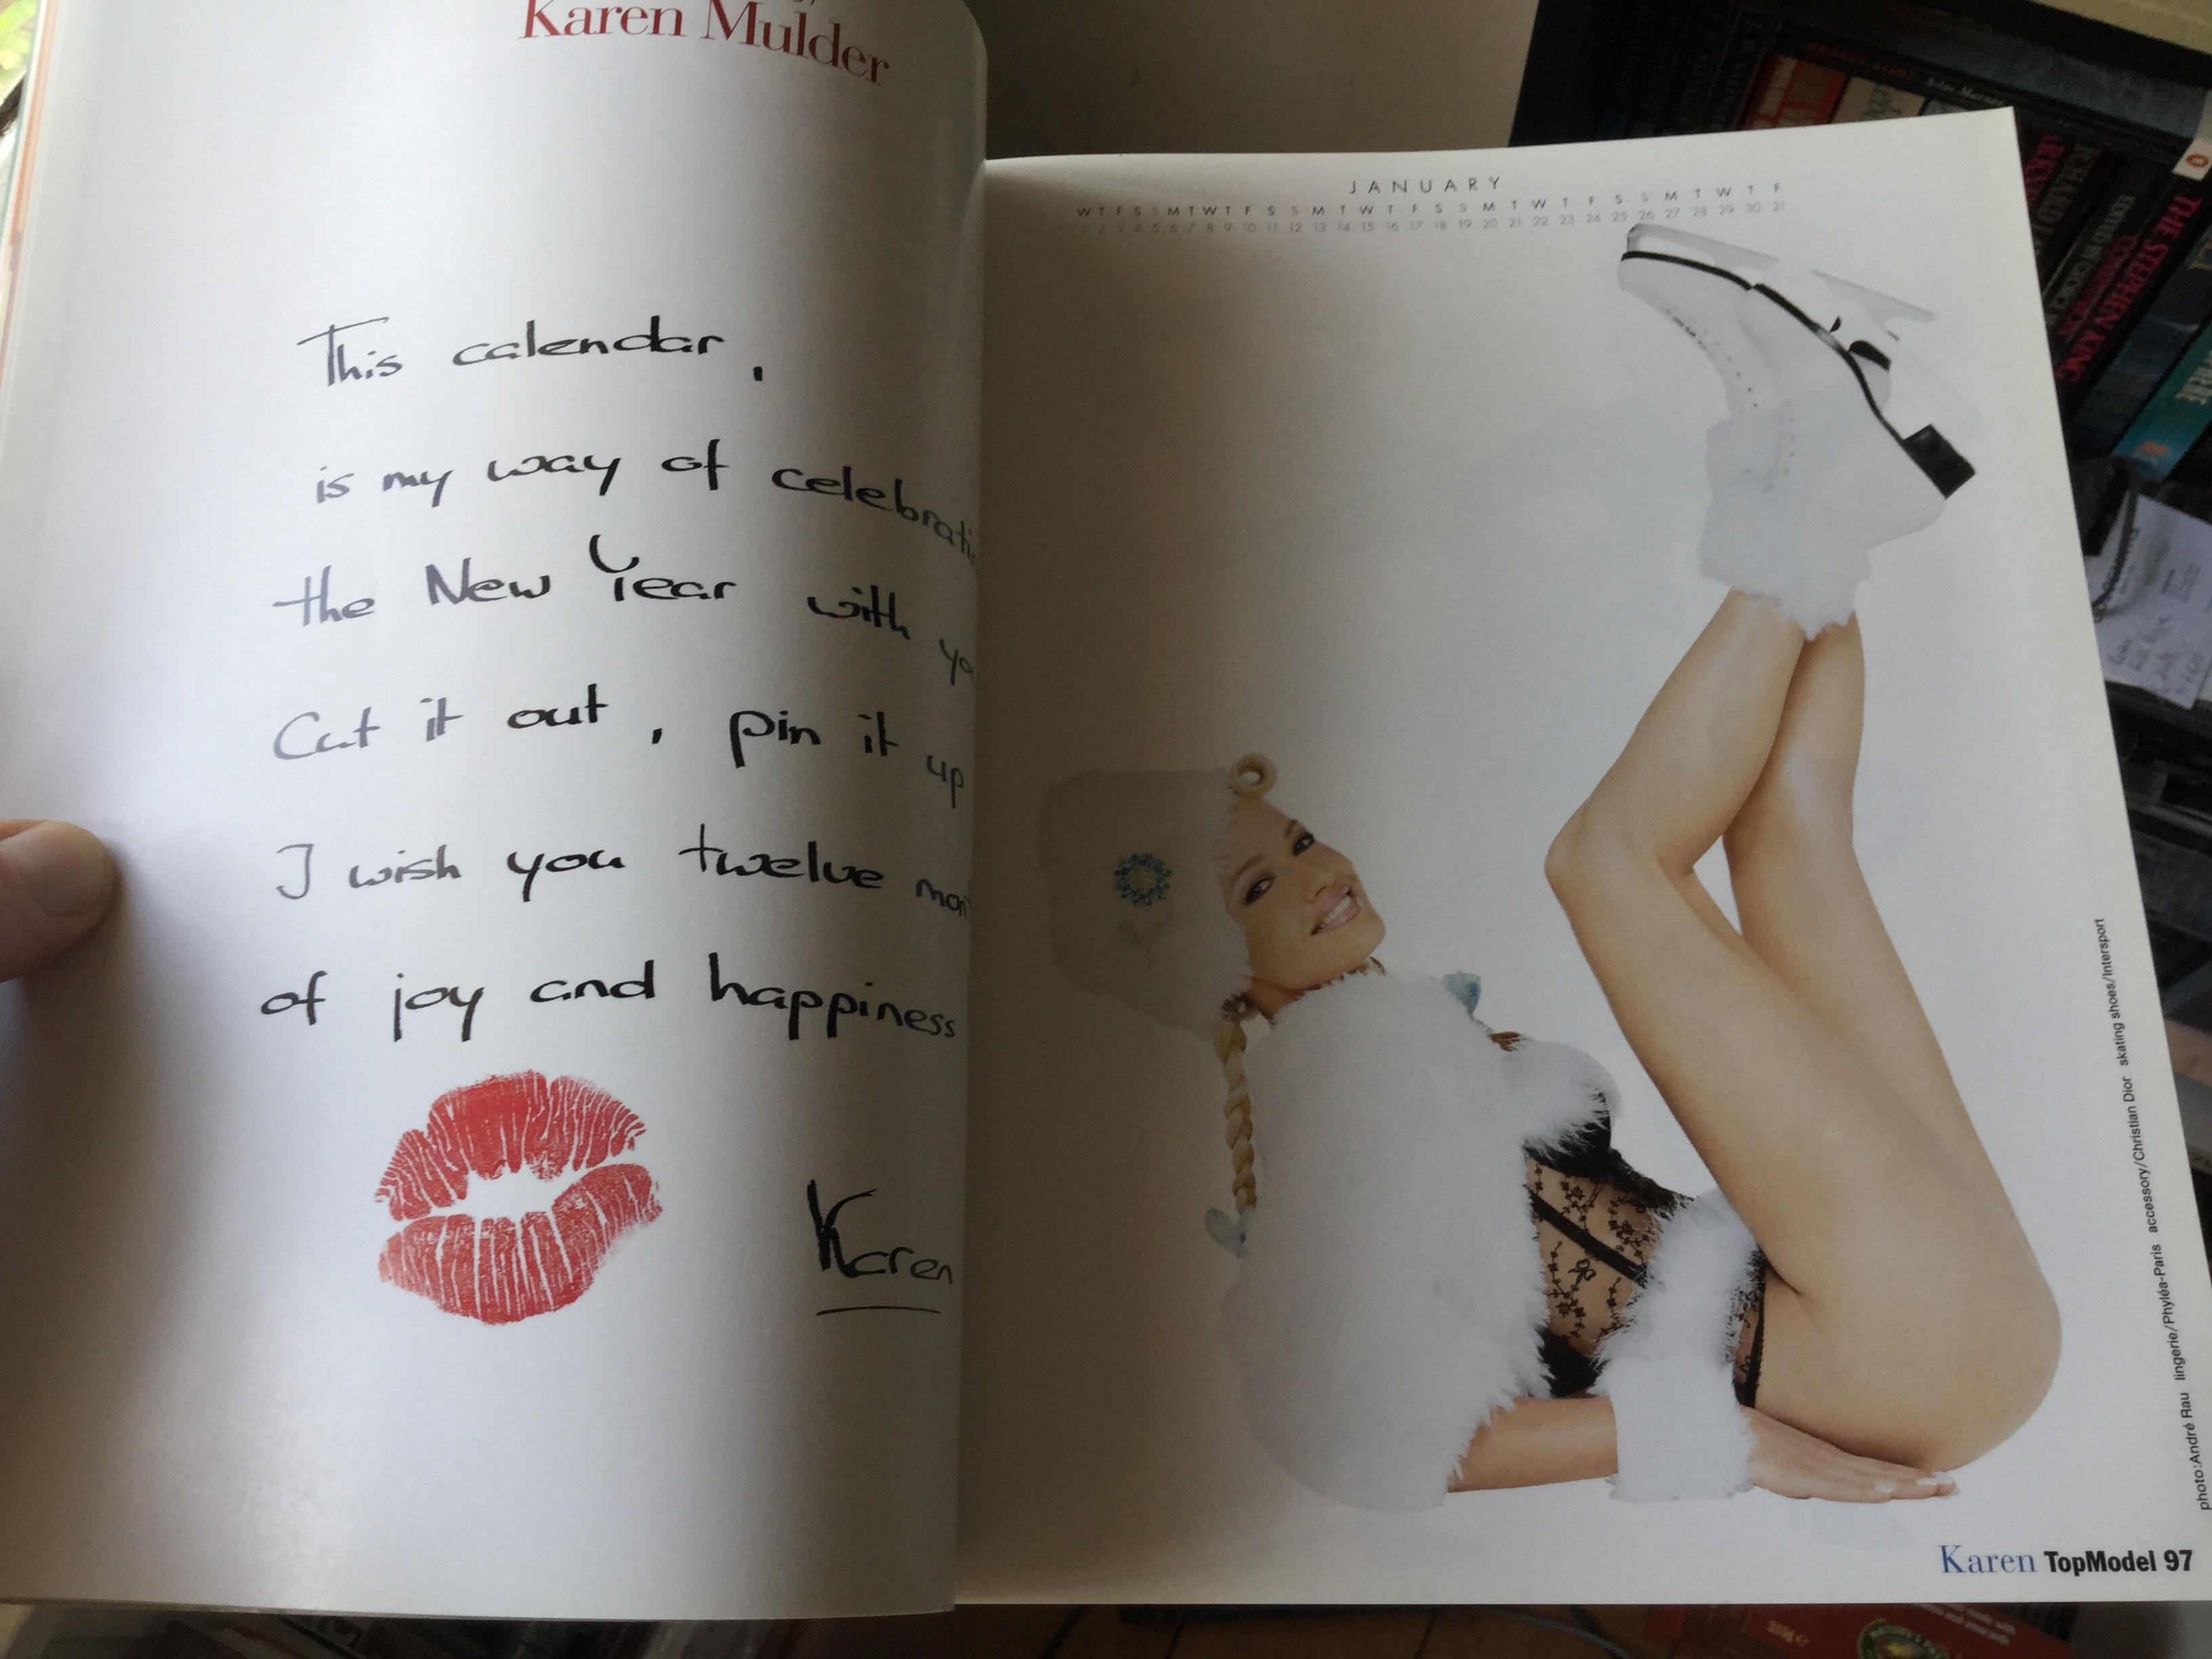 Karen Mulder
This calendar,
is my way of celebrati
the New Year with yo
Cut it out, pin it up
I wish you twelve mon
of joy and happiness
Karen
JANUARY
W T F S S M T W T F S S M T W T F S S M T W T F S S M T W T F
1 2 3 4 5 6 7 8 9 10 11 12 13 14 15 16 17 18 19 20 21 22 23 24 25 26 27 28 29 30 31
photo:André Rau lingerie/Phyléa-Paris accessory/Christian Dior skating shoes/Intersport
Karen TopModel 97
THE STEPHEN KING
COMPANION